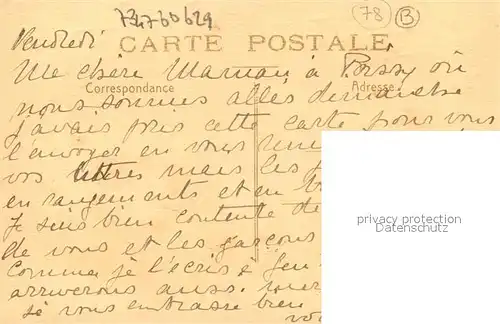 73476b629
78
B
Vendredi
CARTE POSTALE
Ma chère Maman, à Poissy où
Correspondance
Adresse
nous sommes allés dimanche
j'avais pris cette carte pour vous
l'envoyer en vous
vos lettres mais les
en rangements et en
privacy protection
Datenschutz
Je suis bien contente de
de vous et les garçons
comme je l'écris à
arriverons aussi
je vous embrasse bien